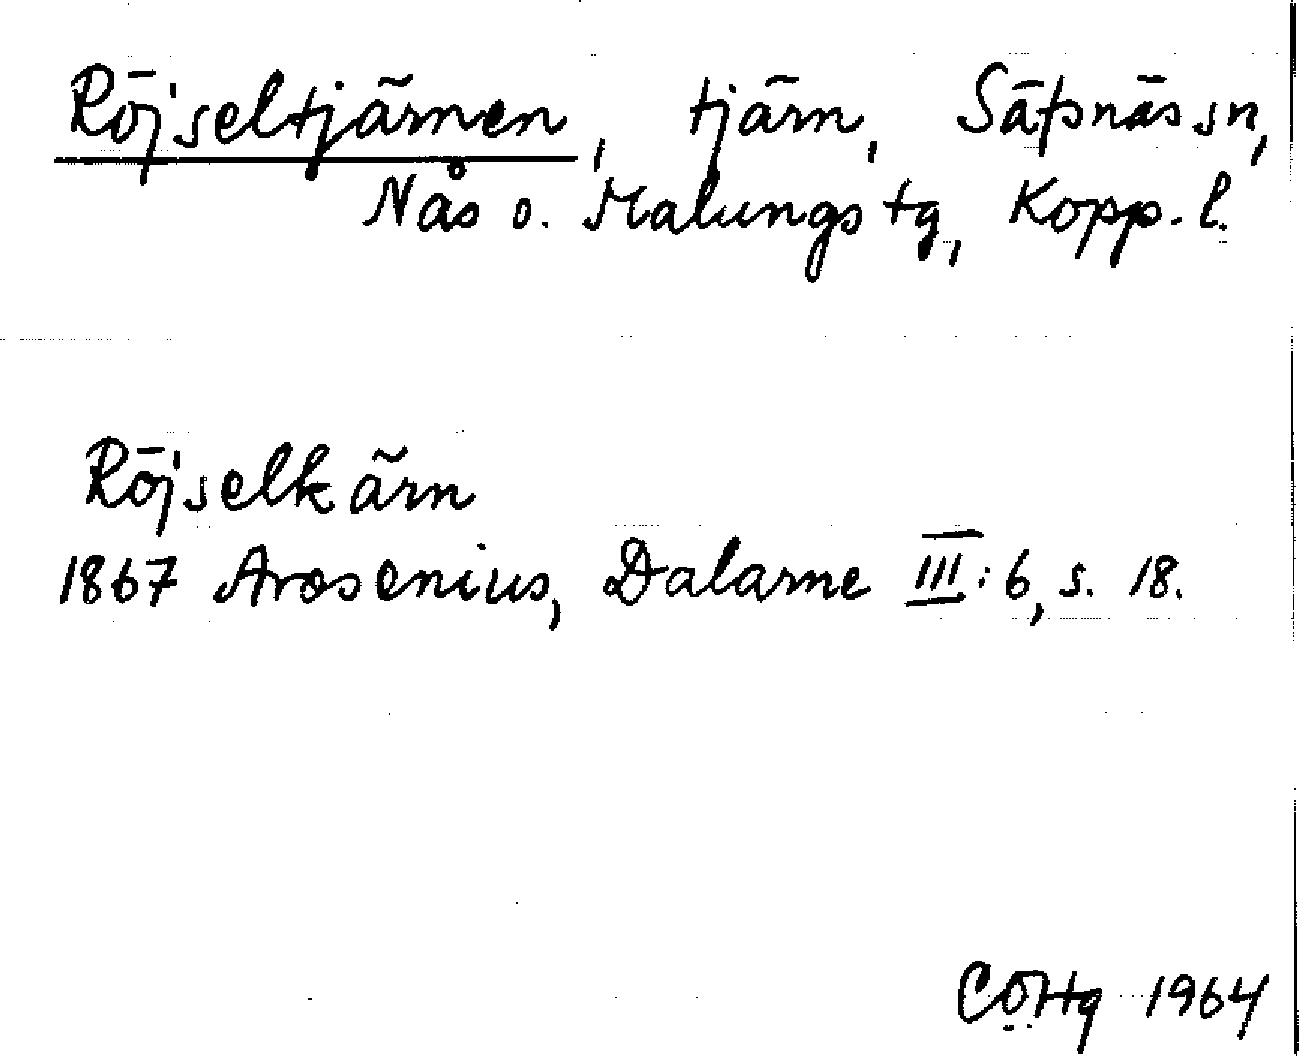 Röjseltjärnen, tjärn, Säfsnäs sn,
Nås o. Malungs tg, Kopp. l.
Röjselkärn
1867 Arosenius, Dalarne III:6, s. 18.
1964